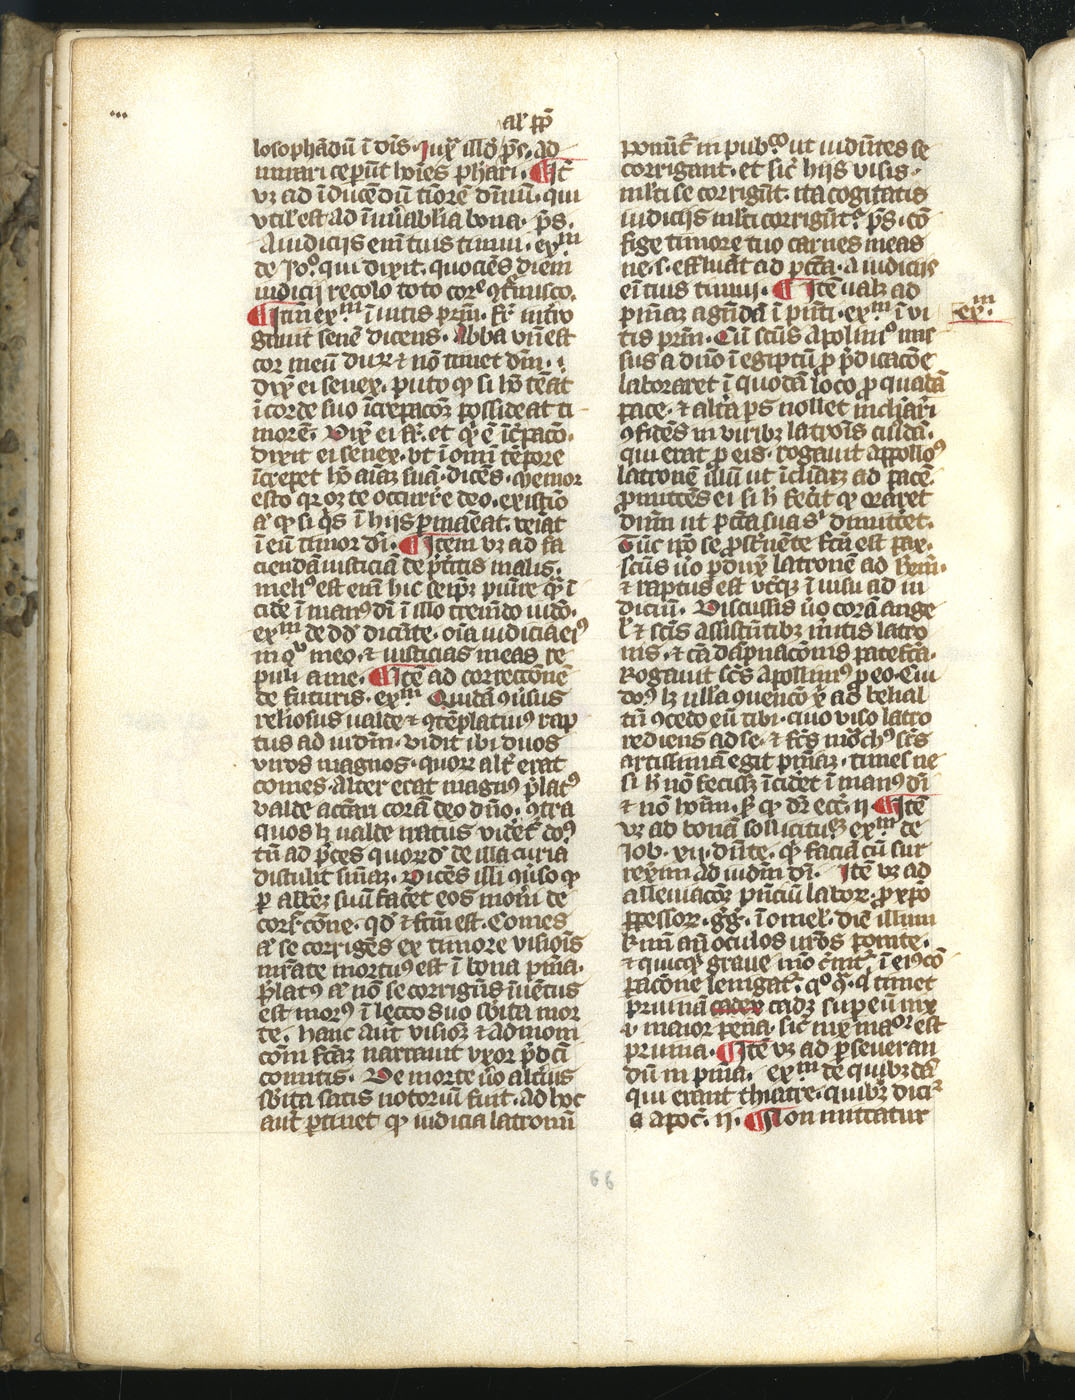 al' pp̄
losophādū ī dīs. Iux̄ illđ p̄s. ad
mirari ceper̄t hoīes ꝑhari. ¶ Itē
vꝫ ad īducēdū tiōrē dn̄iū. qui
vtil' est ad īnūābl'ia bona. p̄s.
A iudicijs em̄ tuis timui. exᵐ
de Io.° qui dixit. quociēs diem
iudicij recolo toto corꝑe ꝯt̄misco.
¶ Itm̄ exᵐ ī uitis pr̄m. Fr̄ int̄ro
gauit senē dicens. Abba vn̄ est
cor meū durꝝ ⁊ nō timet dm̄.
dix̄ ei senex. puto ꝙ si hō tēat
ī corde suo īcrepacōeꝫ possideat ti
morē. Dix̄ ei fr̄. et q̄ ē īcr̄pacō.
dixit ei senex. vt ī omī tēpore
īcrepet hō aīaꝫ suā. dicēs. memor
esto qꝛ oꝫ te occurre deo. existīo
aūt ꝙ si q̄s ī hijs ꝑmāeat. veiat
ī eū timor dn̄i. ¶ Item vꝫ ad fa
ciendā iusticiā de p̄titis malis.
meliꝰ est enī hic seipꝫ puīre q̄ ī
cide ī manꝰ dn̄i ī illo tremēdo iudō.
exᵐ de dd' dicūte. oīa iudicia eiꝰ
in ꝯspū meo. ⁊ iusticias meas re
puli a me. ¶ Itē ad correctionē
de futuris. exᵐ. Quidā ꝯusus
reliosus ualde ⁊ ꝯtēplatiuꝰ rap
tus ad iudm̄. vidit ibi duos
viros magnos. quoꝝ alt' erat
comes. alter erat magnꝰ p̄latꝰ
valde accūari corā deo dn̄o. ꝯtra
quos lꝫ ualde iratus videt' doꝰ
tn̄ ad p̄ces quorūd' de illa curia
distulit sn̄iaꝫ. Dicēs illi q̄uiso ꝙ
ꝑ alteꝝ suū facet eos moīri de
corꝛ̄cōne. qd' ⁊ fcm̄ est. Comes
aūt se corrigēs ex timore visiōis
mr̄ate mortuꝰ est ī bona pn̄ia.
P̄latꝰ aūt nō se corrigēs īuētus
est morꝰ ī lecto suo sbita mor
te. hanc aut̄ visioꝫ ⁊ admoni
com̄ fctaꝫ narrauit vxor p̄dci
comitis. De morte ūo alt̄ius
sbita satis notoriū fuit. ad hoc
aut̄ ꝑtinet ꝙ iudicia latronū
ponūt' in pub.° ut uidētes se
corrigant. et sic̄ hijs visis.
mlti se corrigūt. ita cogitatis
iudicijs mlti corrigūt'. p̄s. cō
fige timore tuo carnes meas
ne. s. effluāt ad pctā. a iudicijs
eī tuis timui. ¶ Itē ualꝫ ad
pn̄iaꝫ agēdā ī pn̄ti. exᵐ. ī vi
exᵐ.
tis pr̄m. Cū scūs Apoliniꝰ mis
sus a dn̄o ī egiptū ꝓ p̄dicacōe
laboraret ī quodā loco ꝓ quadā
pace. ⁊ altā ps nollet inclināri
ꝯfidēs in viribꝫ latrōis cuidā.
qui erat ꝓ eis. rogauit appolloꝰ
latronē illū ut īcliaꝫ ad pacē.
ꝓmittēs ei si h̄ fec̄it ꝙ oraret
dnm̄ ut pctā sua s' dimittet.
Tūc ip̄o se ꝓst̄nēte fctū est pax.
scūs ūo ꝑduxit latronē ad h̄emū.
⁊ raptus est vtqꝫ ī uisu ad iu
dicium. Discussis ūo corā ange
l' ⁊ scīs assistētibꝫ m̄itis latro
nis. ⁊ cā dāpnacōis patefcā.
Rogauit scūs Apolliniꝰ ꝓ eo. Cui
doꝰ lꝫ ulla ꝯuencō x̄ ad belial
tn̄ ꝯcedo eū tibi. quo viso latro
rediens ad se. ⁊ fcūs mōchꝰ scūs
artissimā egit pn̄iaꝫ. times ne
si h̄ nō fecissꝫ īcidet ī manꝰ dn̄i
⁊ nō hoīm. sꝫ ꝙ dr̄ ecci. ij ¶ Itē
vꝫ ad bonā sollicitudieꝫ exᵐ de
Iob. xij. dūte. q̄ faciā cū sur
rexīm ad iudm̄ dn̄i. Itē vꝫ ad
alleuiacōꝫ pn̄ciū laborꝝ ꝓ xp̄o
ꝑpessorꝝ. gg̓. ī omel'. diē illum
km̄ an̄ oculos urōs ponite.
⁊ quicq̄ graue īmo c̄nit', ī eiꝰ cō
pacōne leuigat'. Q.° q̄. q̄ timet
pruinā cadꝫ super eū nix
i. maior pena. sic̄ nix maior est
pruina. ¶ Itē vꝫ ad ꝑseueran
dū in pn̄ia. exᵐ de quibꝫdā
qui erant thiatire. quibꝫ dicit²
Apoc̄. ij. ¶ Non mittatur
66